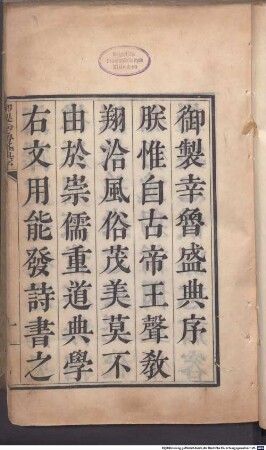 御製幸魯盛典序
朕惟自古帝王聲教
翔洽風俗茂美莫不
由於崇儒重道典學
右文用能發詩書之
一